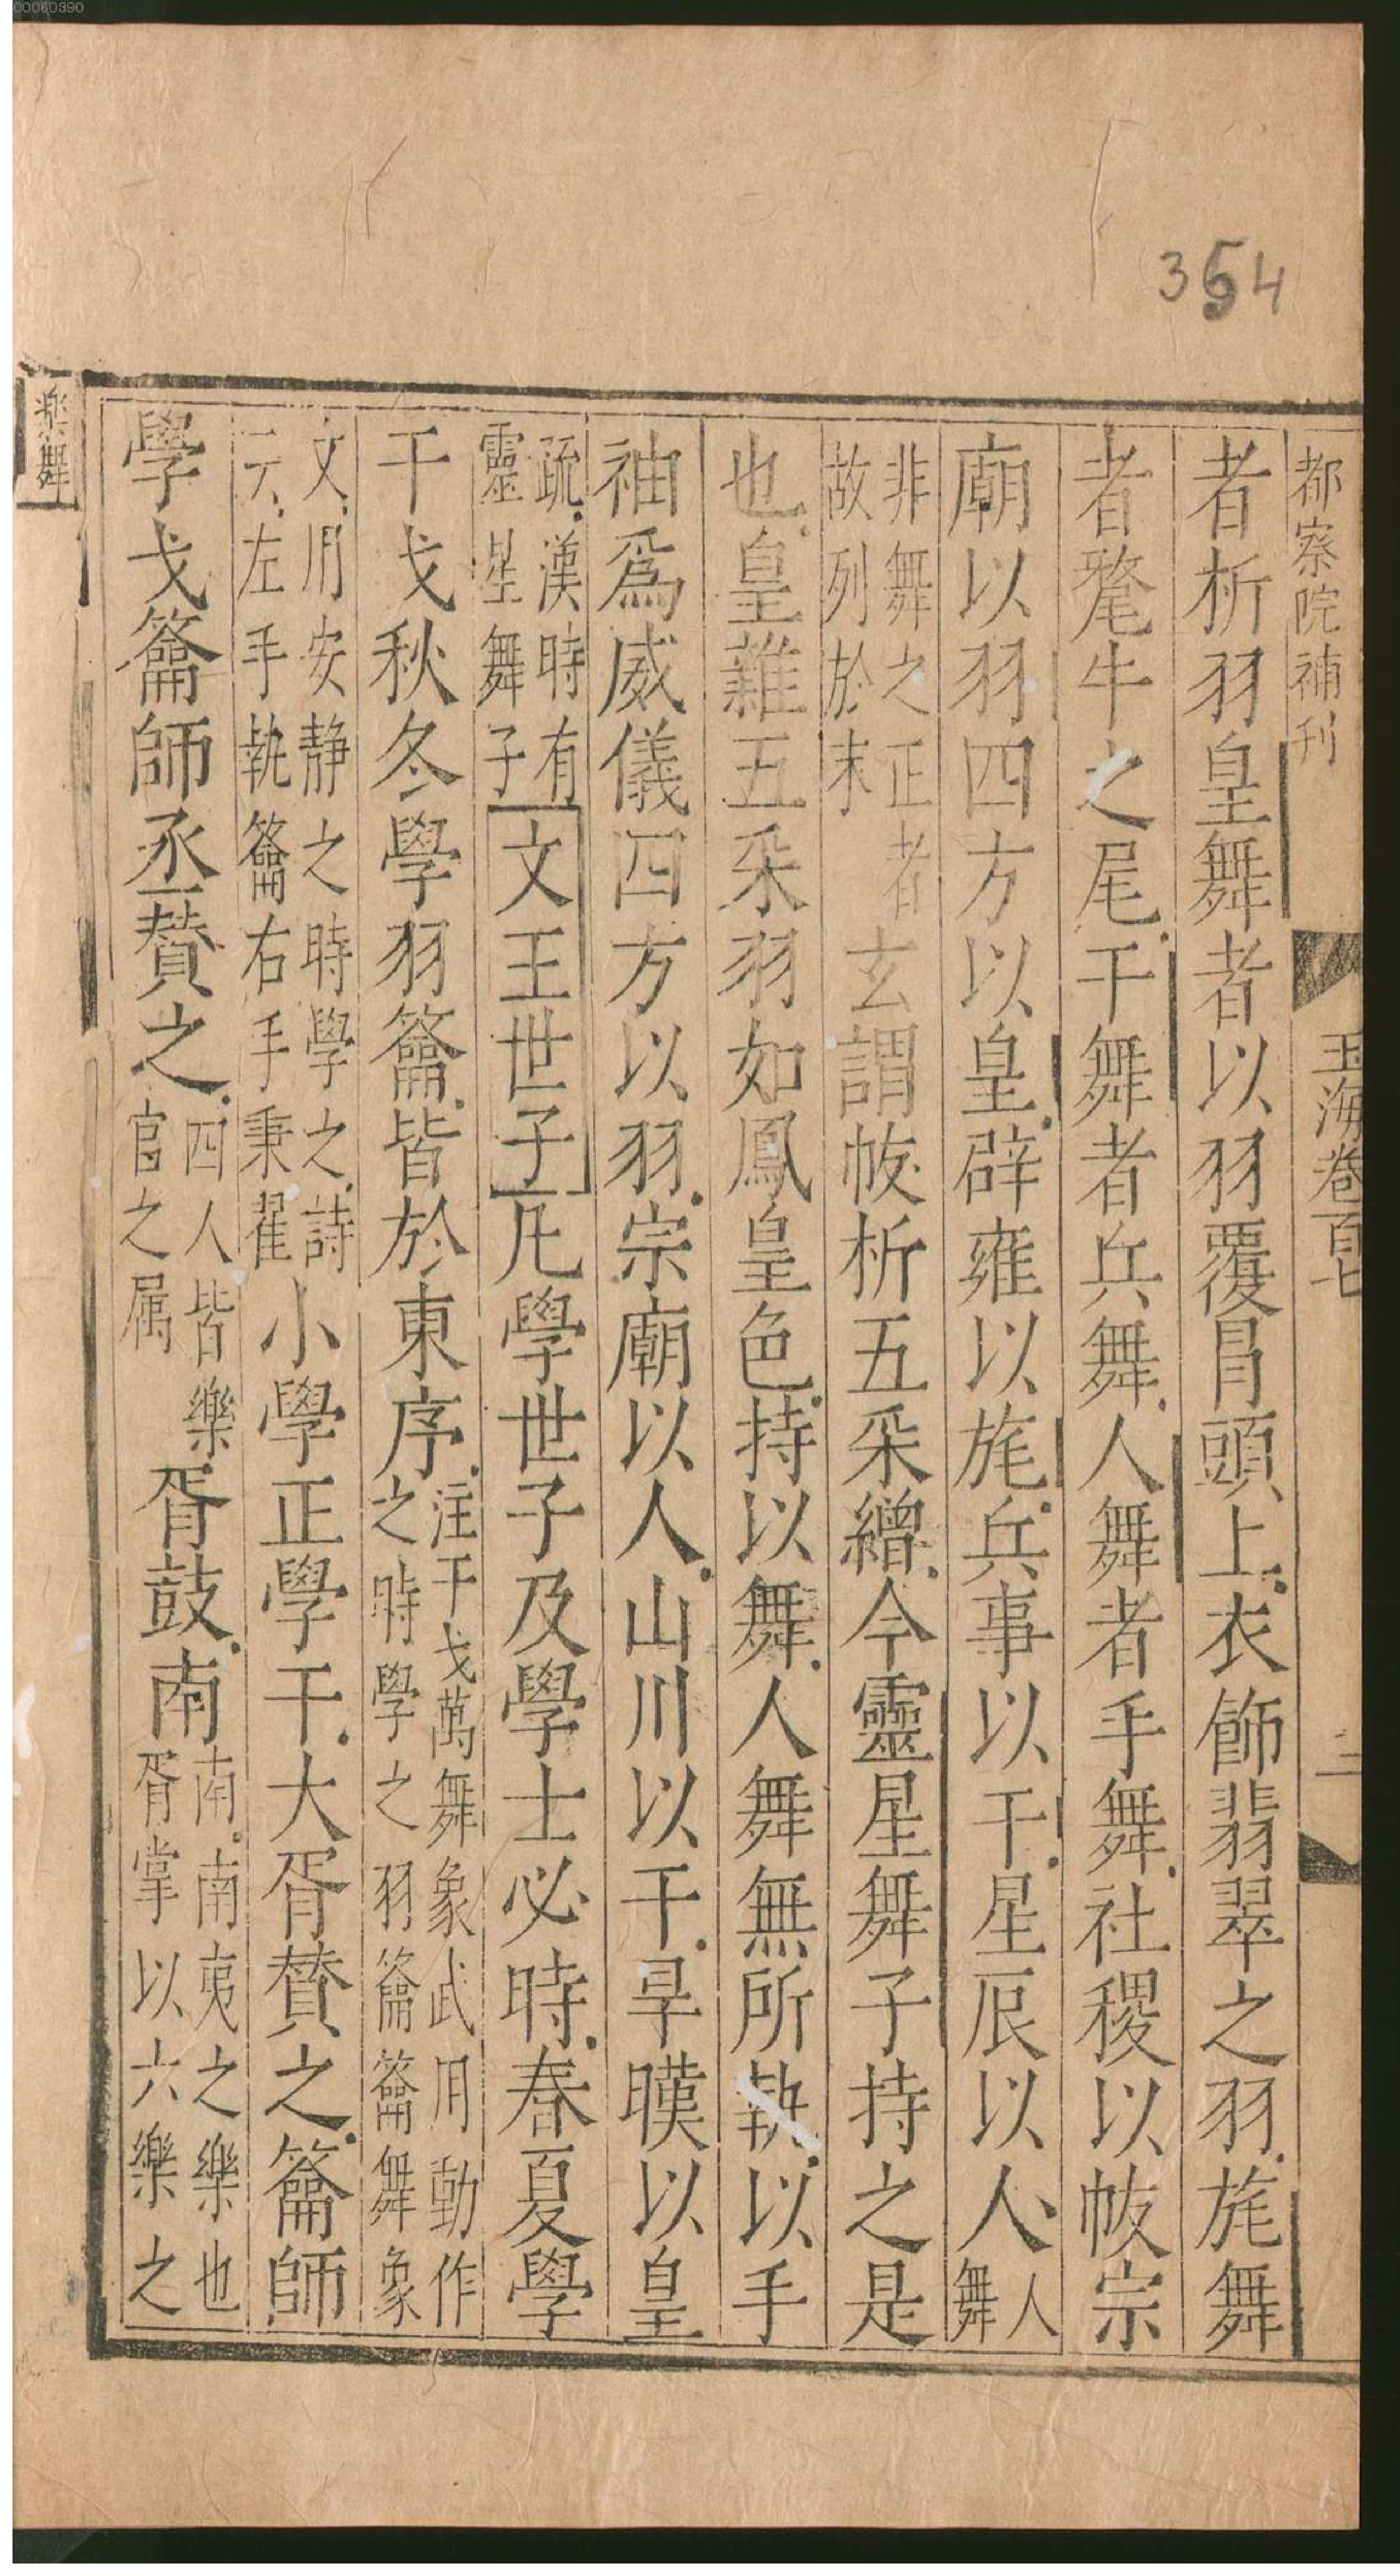 00060390
354
都察院補刊
玉海卷百七
二
者析羽皇舞者以羽覆冒頭上衣飾翡翠之羽旄舞
者氂牛之尾干舞者兵舞人舞者手舞社稷以帗宗
廟以羽四方以皇辟雍以旄兵事以干星辰以人人
舞
非舞之正者
故列於末
玄謂帗析五采繒今靈星舞子持之是
也皇雜五采羽如鳳皇色持以舞人舞無所執以手
袖爲威儀四方以羽宗廟以人山川以干旱暵以皇
疏漢時有
靈星舞子
文王世子凡學世子及學士必時春夏學
干戈秋冬學羽籥皆於東序
注干戈萬舞象武用動作
之時學之羽籥籥舞象
文用安静之時學之詩
云左手執籥右手秉翟
小學正學干大胥賛之籥師
學戈籥師丞賛之
四人皆樂
官之属
胥鼓南
南南夷之樂也
胥掌以六樂之
樂舞